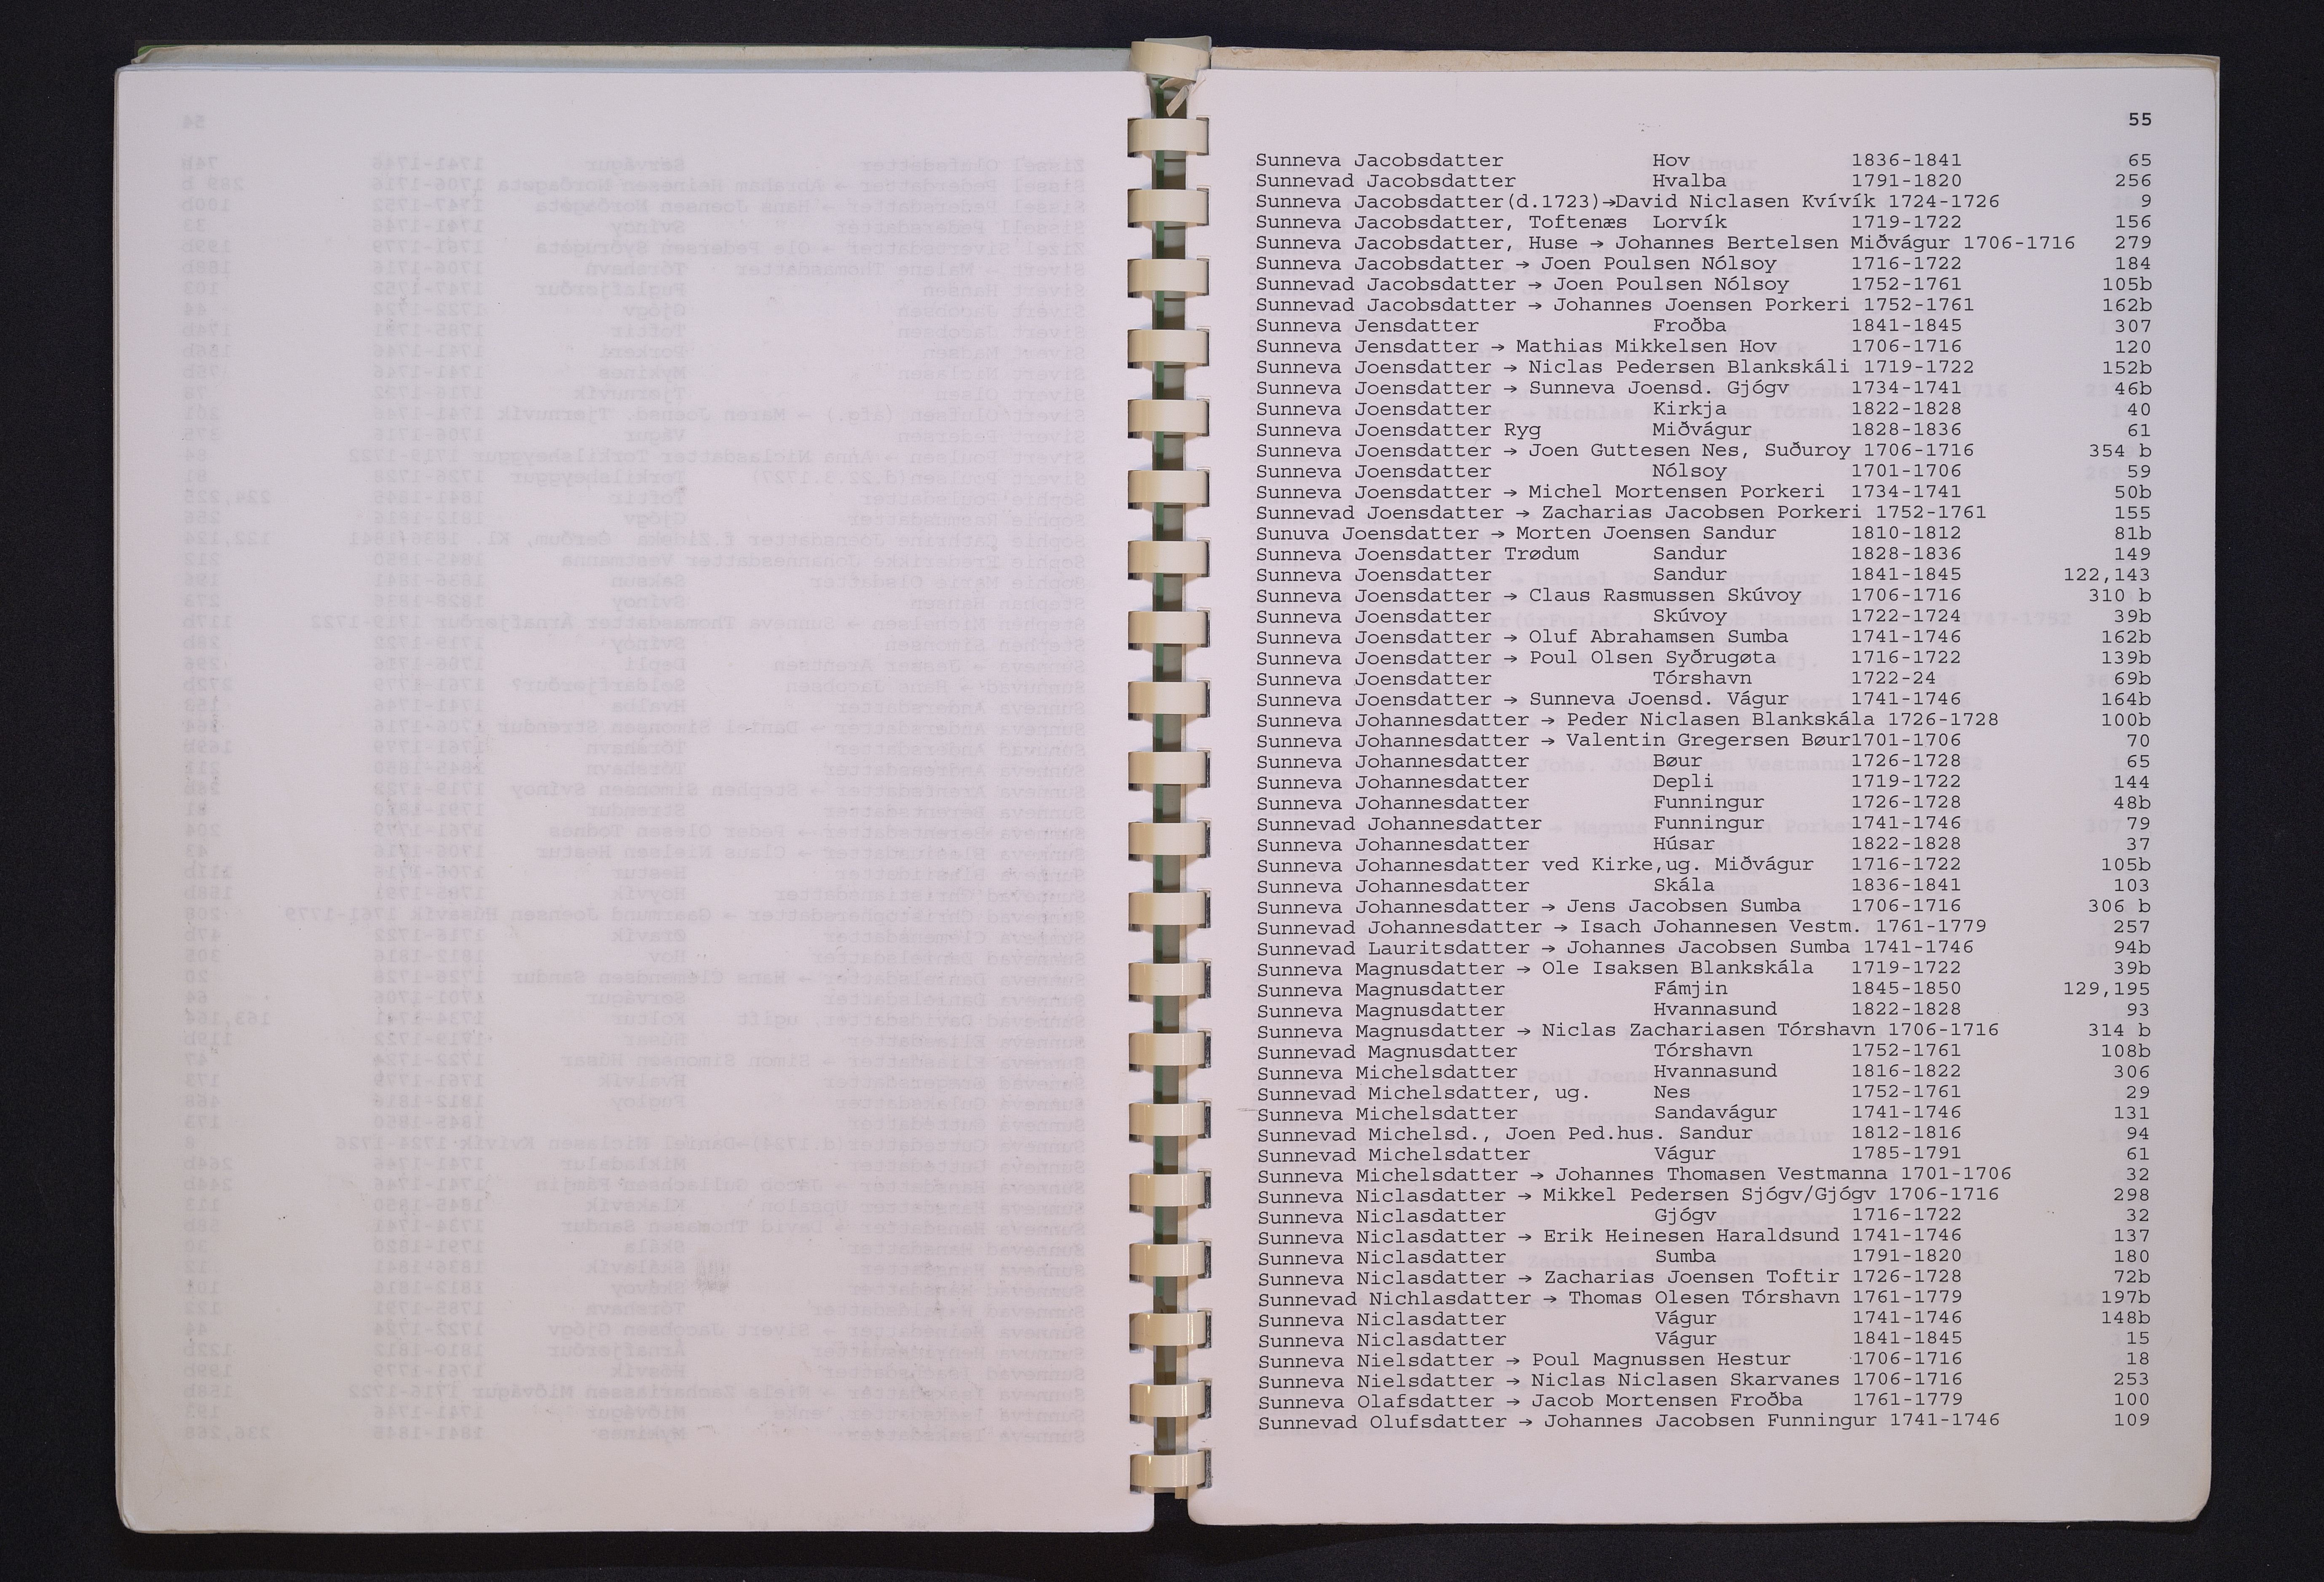 55
Sunneva Jacobsdatter Hov 1836-1841 65
Sunnevad Jacobsdatter Hvalba 1791-1820 256
Sunneva Jacobsdatter(d.1723)→David Niclasen Kvívík 1724-1726 9
Sunneva Jacobsdatter, Toftenæs Lorvík 1719-1722 156
Sunneva Jacobsdatter, Huse → Johannes Bertelsen Miðvágur 1706-1716 279
Sunneva Jacobsdatter → Joen Poulsen Nólsoy 1716-1722 184
Sunnevad Jacobsdatter → Joen Poulsen Nólsoy 1752-1761 105b
Sunnevad Jacobsdatter → Johannes Joensen Porkeri 1752-1761 162b
Sunneva Jensdatter Froðba 1841-1845 307
Sunneva Jensdatter → Mathias Mikkelsen Hov 1706-1716 120
Sunneva Joensdatter → Niclas Pedersen Blankskáli 1719-1722 152b
Sunneva Joensdatter → Sunneva Joensd. Gjógv 1734-1741 46b
Sunneva Joensdatter Kirkja 1822-1828 40
Sunneva Joensdatter Ryg Miðvágur 1828-1836 61
Sunneva Joensdatter → Joen Guttesen Nes, Suðuroy 1706-1716 354 b
Sunneva Joensdatter Nólsoy 1701-1706 59
Sunneva Joensdatter → Michel Mortensen Porkeri 1734-1741 50b
Sunnevad Joensdatter → Zacharias Jacobsen Porkeri 1752-1761 155
Sunuva Joensdatter → Morten Joensen Sandur 1810-1812 81b
Sunneva Joensdatter Trødum Sandur 1828-1836 149
Sunneva Joensdatter Sandur 1841-1845 122,143
Sunneva Joensdatter → Claus Rasmussen Skúvoy 1706-1716 310 b
Sunneva Joensdatter Skúvoy 1722-1724 39b
Sunneva Joensdatter → Oluf Abrahamsen Sumba 1741-1746 162b
Sunneva Joensdatter → Poul Olsen Syðrugøta 1716-1722 139b
Sunneva Joensdatter Tórshavn 1722-24 69b
Sunneva Joensdatter → Sunneva Joensd. Vágur 1741-1746 164b
Sunneva Johannesdatter → Peder Niclasen Blankskála 1726-1728 100b
Sunneva Johannesdatter → Valentin Gregersen Bøur1701-1706 70
Sunneva Johannesdatter Bøur 1726-1728 65
Sunneva Johannesdatter Depli 1719-1722 144
Sunneva Johannesdatter Funningur 1726-1728 48b
Sunnevad Johannesdatter Funningur 1741-1746 79
Sunneva Johannesdatter Húsar 1822-1828 37
Sunneva Johannesdatter ved Kirke,ug. Miðvágur 1716-1722 105b
Sunneva Johannesdatter Skála 1836-1841 103
Sunneva Johannesdatter → Jens Jacobsen Sumba 1706-1716 306 b
Sunnevad Johannesdatter → Isach Johannesen Vestm. 1761-1779 257
Sunnevad Lauritsdatter → Johannes Jacobsen Sumba 1741-1746 94b
Sunneva Magnusdatter → Ole Isaksen Blankskála 1719-1722 39b
Sunneva Magnusdatter Fámjin 1845-1850 129,195
Sunneva Magnusdatter Hvannasund 1822-1828 93
Sunneva Magnusdatter → Niclas Zachariasen Tórshavn 1706-1716 314 b
Sunnevad Magnusdatter Tórshavn 1752-1761 108b
Sunneva Michelsdatter Hvannasund 1816-1822 306
Sunnevad Michelsdatter, ug. Nes 1752-1761 29
Sunneva Michelsdatter Sandavágur 1741-1746 131
Sunnevad Michelsd., Joen Ped.hus. Sandur 1812-1816 94
Sunnevad Michelsdatter Vágur 1785-1791 61
Sunneva Michelsdatter → Johannes Thomasen Vestmanna 1701-1706 32
Sunneva Niclasdatter → Mikkel Pedersen Sjógv/Gjógv 1706-1716 298
Sunneva Niclasdatter Gjógv 1716-1722 32
Sunneva Niclasdatter → Erik Heinesen Haraldsund 1741-1746 137
Sunneva Niclasdatter Sumba 1791-1820 180
Sunneva Niclasdatter → Zacharias Joensen Toftir 1726-1728 72b
Sunnevad Nichlasdatter → Thomas Olesen Tórshavn 1761-1779 197b
Sunneva Niclasdatter Vágur 1741-1746 148b
Sunneva Niclasdatter Vágur 1841-1845 15
Sunneva Nielsdatter → Poul Magnussen Hestur 1706-1716 18
Sunneva Nielsdatter → Niclas Niclasen Skarvanes 1706-1716 253
Sunneva Olafsdatter → Jacob Mortensen Froðba 1761-1779 100
Sunnevad Olufsdatter → Johannes Jacobsen Funningur 1741-1746 109